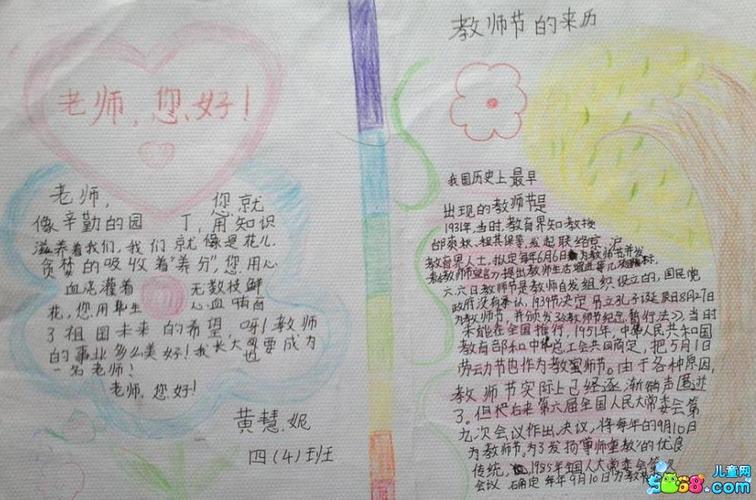 老师,您好!
老师,您就
像辛勤的园丁,用知识
滋养着我们,我们就像是花儿
贪婪的吸收着"养分",您用心
血浇灌着无数枝鲜
花,您用毕生心血哺育
了祖国未来的希望,呀!教师
的事业多么美好!我长大也要成为
一名老师!
老师,您好!
黄慧妮
四(4)班
教师节的来历
我国历史上最早
出现的教师节是
1931年,当时,教育界知教授
邰爽秋、程其保等,发起联络京、沪
教育界人士,拟定每年6月6日为教师节,并发
表《教师宣言》,提出教师生活增进等
六六日教师节是教师自发组织设立的,国民党
政府没有承认,1939年决定另立孔子诞辰日8月27日
为教师节,并颁发《教师节纪念暂行法》,当时
未能在全国推行,1951年,中华人民共和国
教育部和中华总工会共同商定,把5月1日
劳动节也作为教师节。由于各种原因,
教师节实际上已经逐渐销声匿迹
了。但后来第六届全国人大常委会第
九次会议作出决议,将每年的9月10日
为教师节,为了发扬"尊师重教"的优良
传统,1985年全国人大常委会第
会议确定每年9月10日为教
儿童网